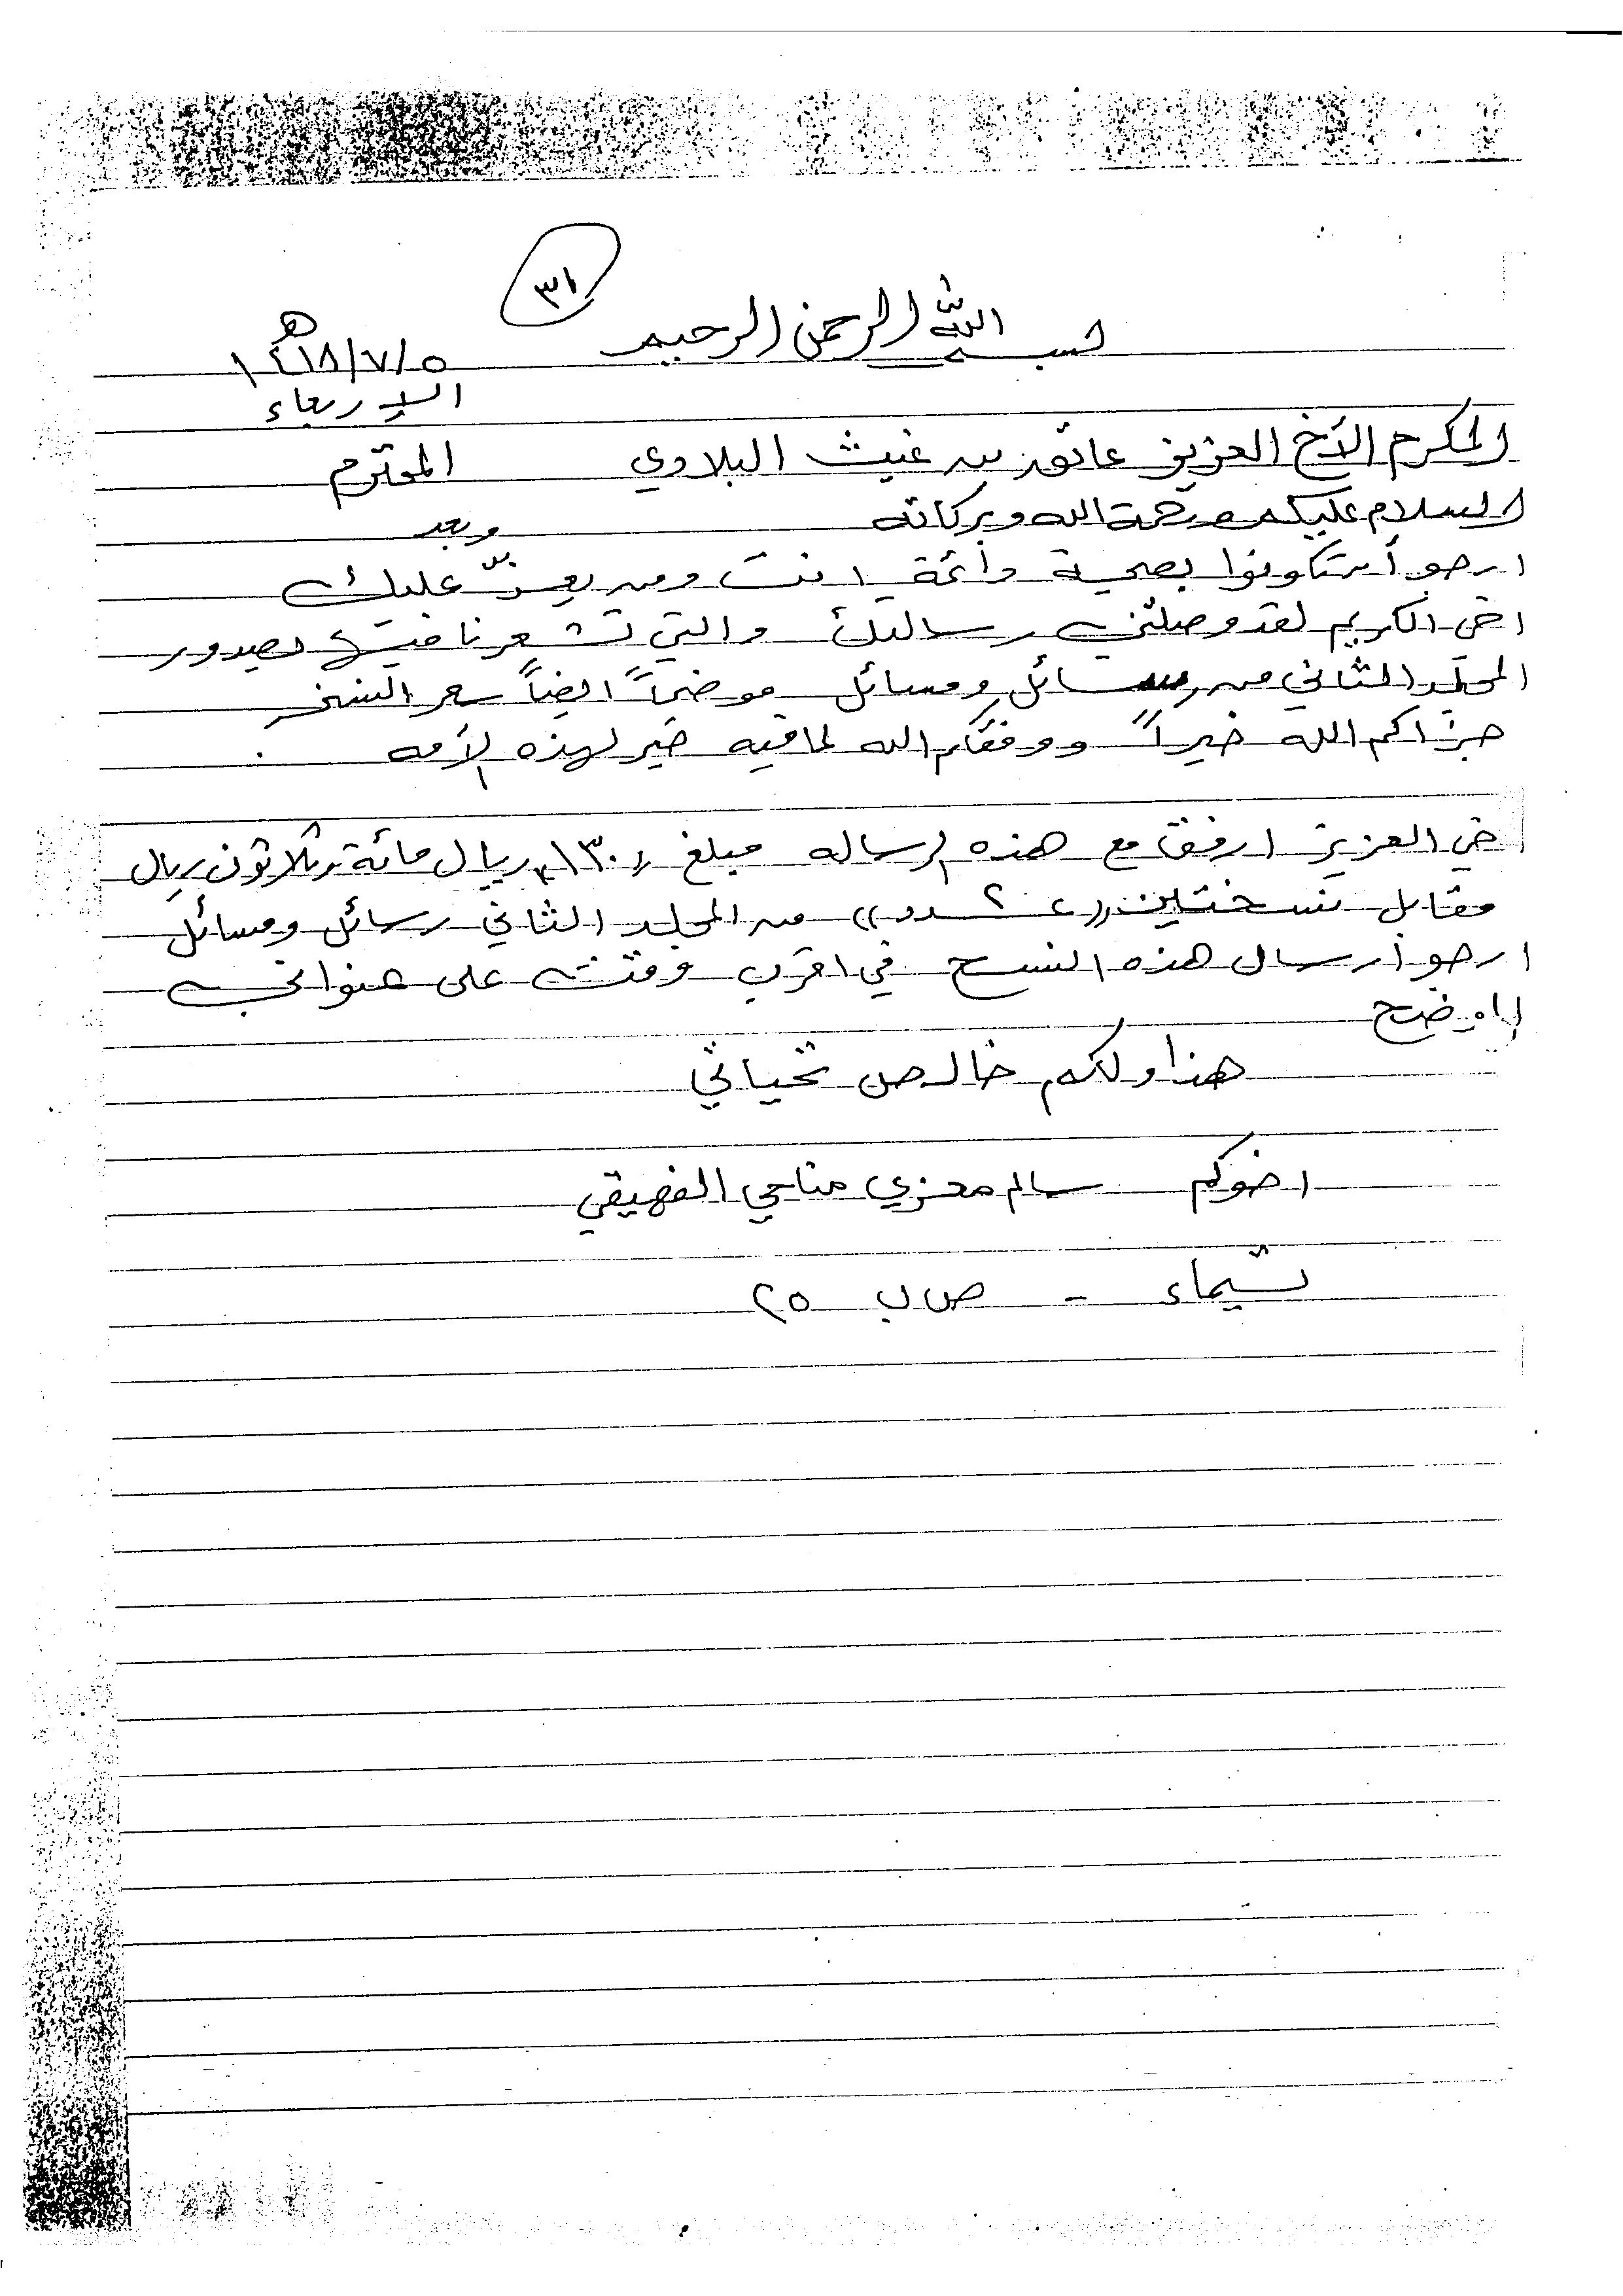 ٣١
بسم الله الرحمن الرحيم
١٤١٨/٧/٥ هـ
الاربعاء
المكرم الأخ العزيز عاتق بن غيث البلادي المحترم
السلام عليكم ورحمة الله وبركاته وبعد
ارجو أن تكونوا بصحية دائمة انت ومن يعزّ عليك
اخي الكريم لقد وصلتني رسالتك والتي تشعرنا فيها بصدور
المجلد الثاني من رسائل ومسائل موضحاً ايضاً سعر النسخه
جزاكم الله خيراً ووفقكم الله لما فيه خير لهذه الأمه
اخي العزيز ارفق مع هذه الرساله مبلغ ١٣٠ ريال مائة وثلاثون ريال
مقابل نسختين ((٢ عدد)) من المجلد الثاني رسائل ومسائل
ارجو ارسال هذه النسخ في اقرب وقت على عنواني
الموضح
هذا ولكم خالص تحياتي
اخوكم سالم معزي مناحي الفهيقي
تيماء - ص ب ٢٥